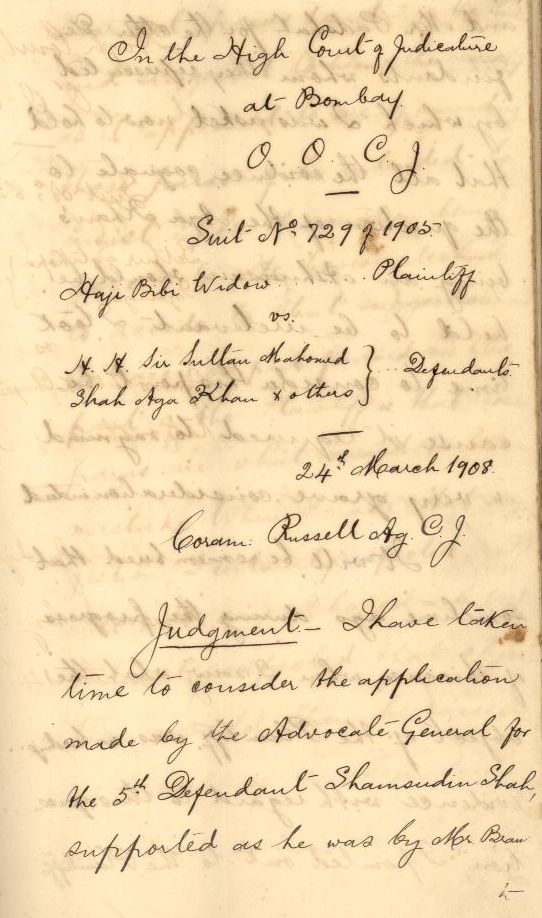 In the High Court of Judicature
at Bombay.
O. O. C. J.
Suit No. 729 of 1905.
Haji Bibi Widow ...... Plaintiff
vs.
H. H. Sir Sultan Mahomed
Shah Aga Khan & others } ... Defendants
24th March 1908.
Coram: Russell Ag. C. J.
Judgment. — I have taken
time to consider the application
made by the Advocate General for
the 5th Defendant Shamsudin Shah,
supported as he was by Mr.